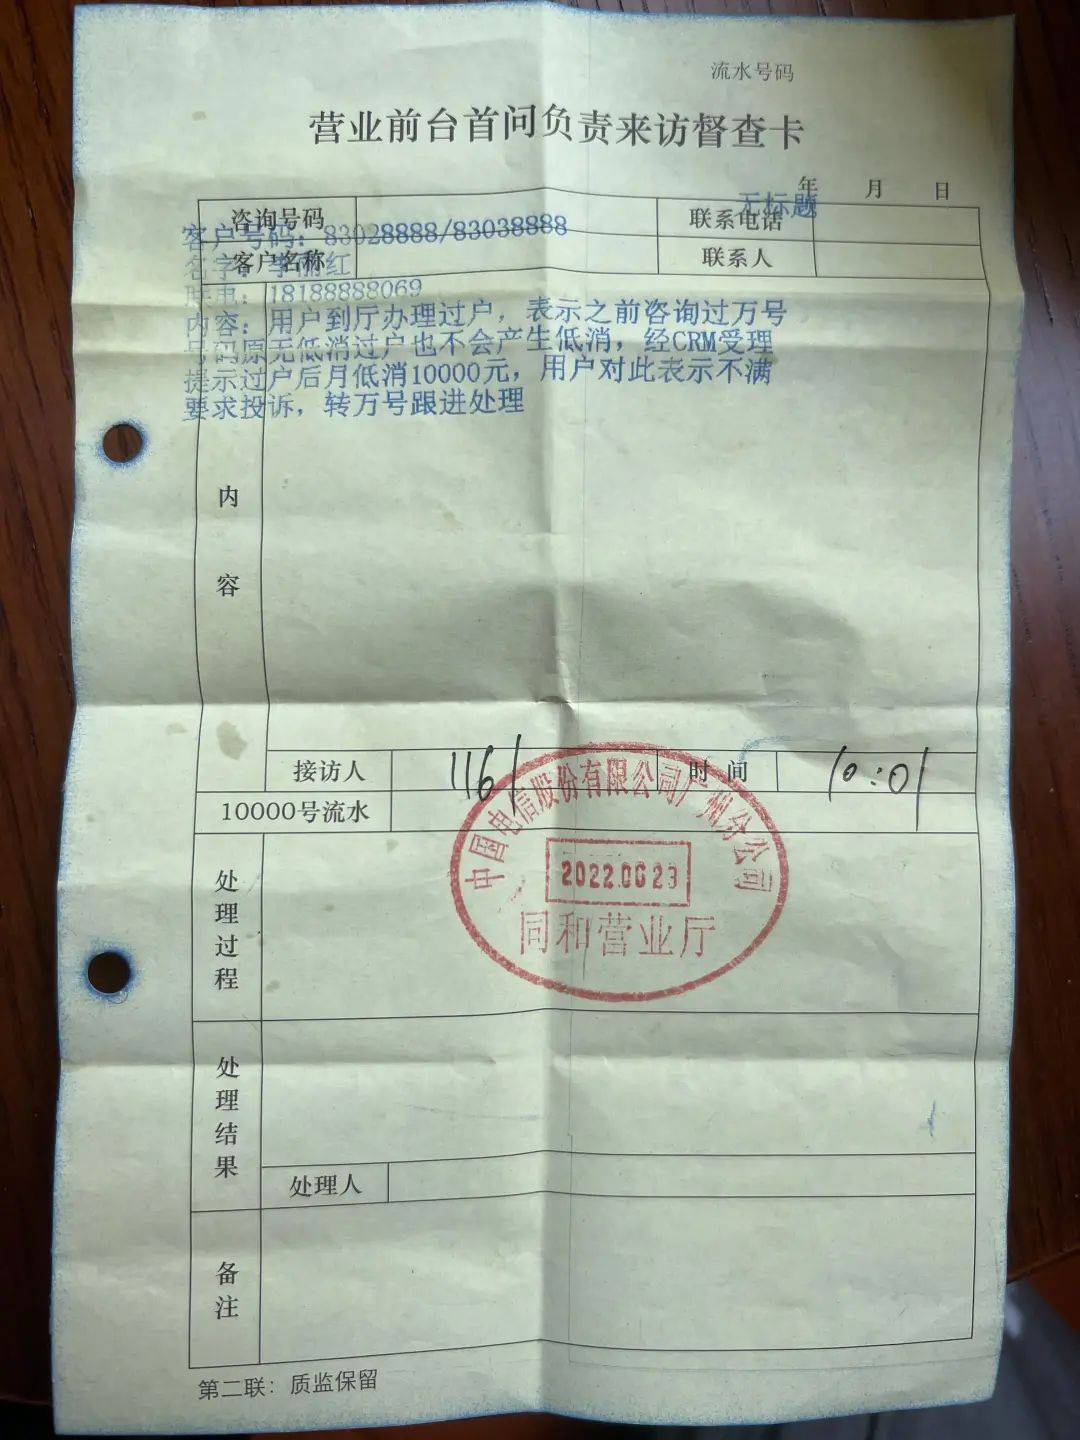 流水号码
营业前台首问负责来访督查卡
年 月 日
无标题
咨询号码 联系电话
客户号码：83028888/83038888
客户名称 联系人
名字：李丽红
联电：18188888069
内容：用户到厅办理过户，表示之前咨询过万号
号码原无低消过户也不会产生低消，经CRM受理
提示过户后月低消10000元，用户对此表示不满
要求投诉，转万号跟进处理
内容
接访人 1161 时间 10:01
10000号流水
中国电信股份有限公司广州分公司
2022.06.23
同和营业厅
处理过程
处理结果
处理人
备注
第二联：质监保留